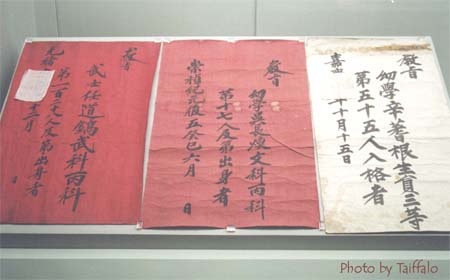 敎旨
幼學辛蓍根生員三等
第五十五人入格者
十月十五日
敎旨
幼學孟長淳文科丙科
第十七人及第出身者
崇禎紀元後五癸巳六月 日
敎旨
武士任道鎬武科丙科
人及第出身者
光緒
月 日
Photo by Taiffalo